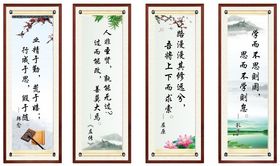 业精于勤，荒于嬉；
行成于思，毁于随
韩愈
人非圣贤，孰能无过。
过而能改，善莫大焉。
《左传》
路漫漫其修远兮，
吾将上下而求索。
—屈原
学而不思则罔，
思而不学则殆。